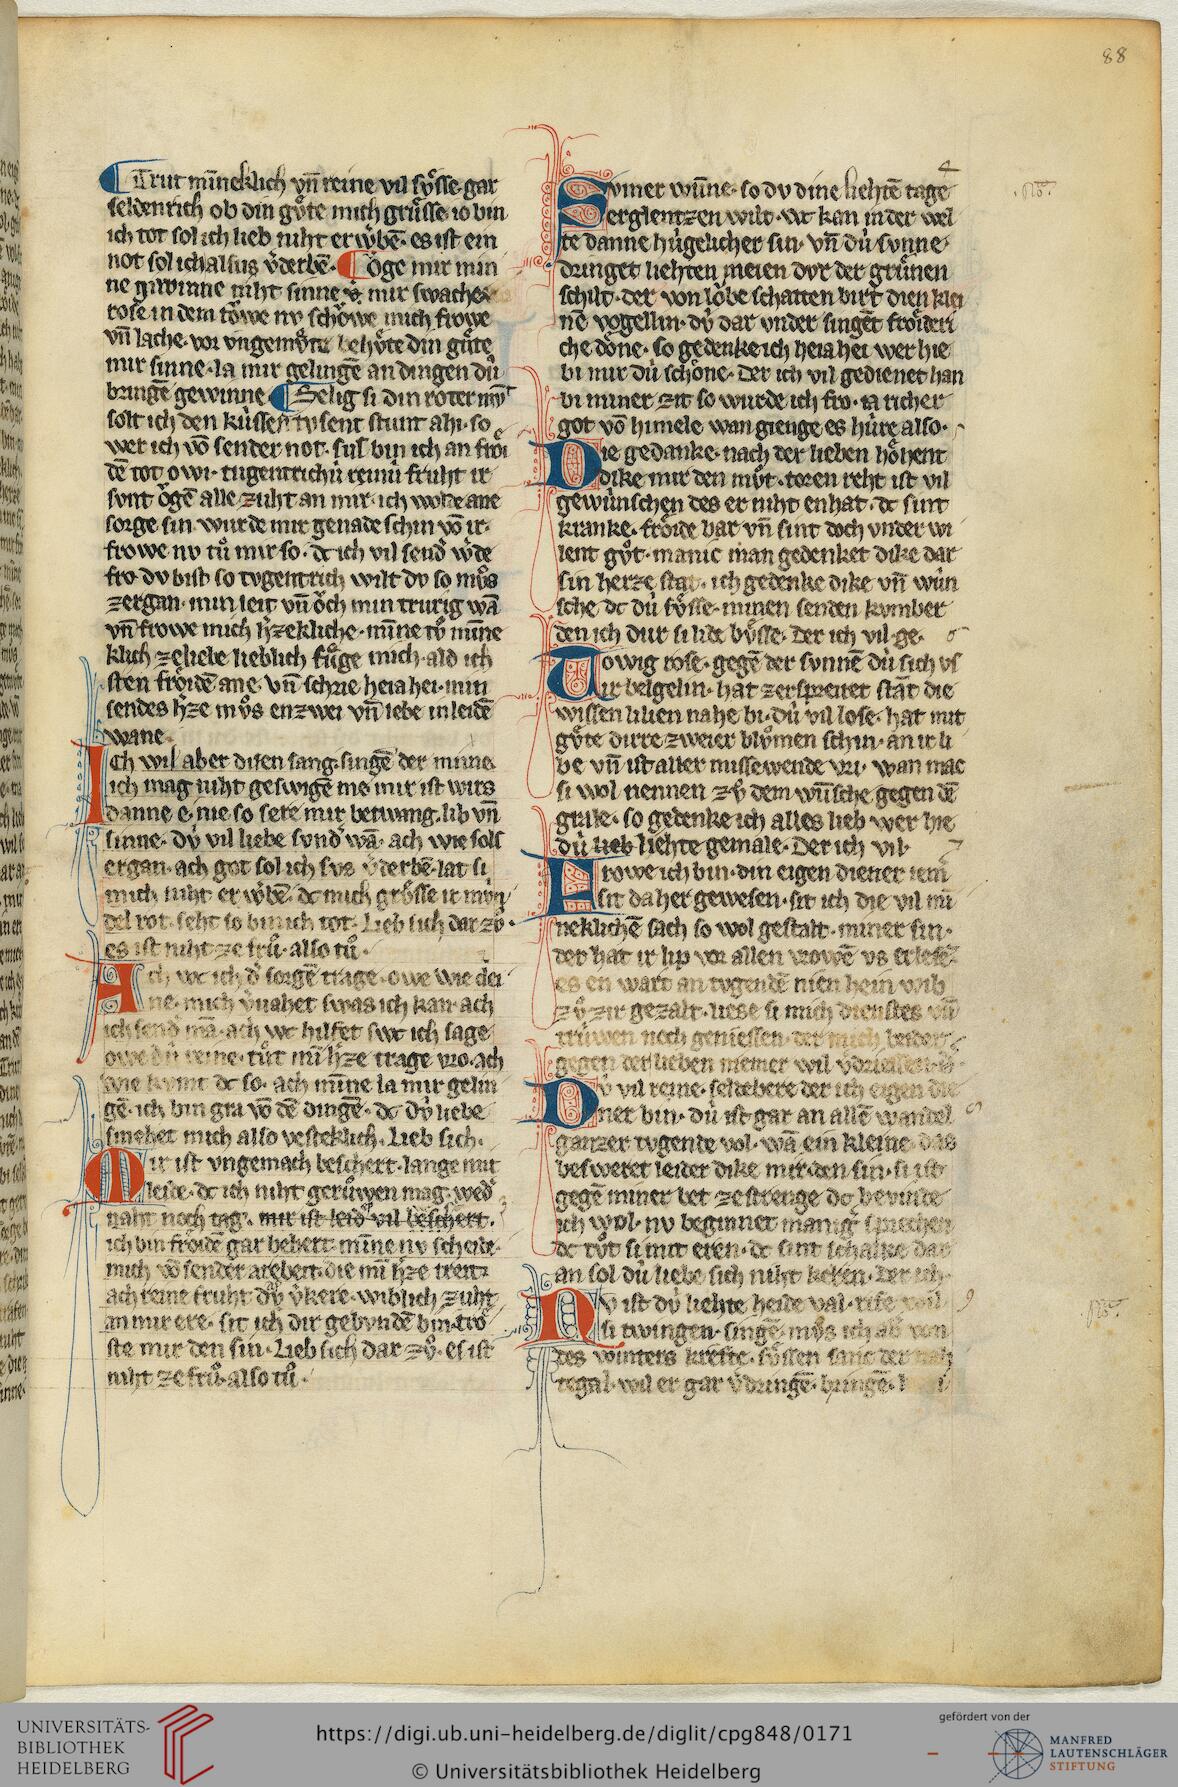 88
Trut miñeklich vñ reine vil sv̊sse gar
seldenrich ob din gv̊te mich grůsse io bin
ich tot sol ich lieb niht erwerbē· es ist ein
not sol ich alsus v̾derbē· Oͮge mir min
ne givvinne niht sinne mir swache
rose in dem towe nv schoͮwe mich frowe
vñ lache· vor vngemv̊te behv̊te din gůte
mir sinne· la mir gelingē an dingen dú
bringē gewinne Selig si din roter mv̄t
solt ich den kússen tvsent stunt ahi· so
wer ich vō sender not· sus bin ich an froͤi
dē tot owi· tugentrichú reinú fruht ir
sunt oͮgē alle zuht an mir· ich wolte ane
sorge sin· wurde mir genade schin vō ir·
frowe nv tů mir so· dc ich vil send̾ w̾de
fro· dv bist so tvgentrich wilt dv so mv̊s
zergan· min leit vñ oͮch min trurig wā
vñ frowe mich h̾zekliche· miñe tv̊ miñe
klich ze liebe lieblich fůge mich· ald ich
sten froͤidē ane· vñ schrie heia hei· min
sendes h̾ze mv̊s enzwei vñ lebe in leidē
wane·
Ich wil aber disen sang singē der minne
ich mag niht geswigē me mir ist wirs
danne e· nie so sere mir betwang· lib vñ
sinne· dv̍ vil liebe svnd̾ wā· ach wie sols
ergan· ach got sol ich sus v̾derbē· lat si
mich niht erw̾bē· dc mich grůsse ir mvn
del rot· seht so bin ich tot· Lieb sich dar zv̊·
es ist niht ze frů· also tů·
Ach wc ich d̾ sorgē trage· owe wie dei
ne· mich v̾uahet swas ich kan· ach
ich send̾ mā· ach wc hilfet swc ich sage
owe dú reine· tůt mī h̾ze trage vro· ach
wie kvmt dc so· ach miñe la mir gelin
gē· ich bin gra vō dē dingē· dc dv̍ liebe
smehet mich also vesteklich· Lieb sich·
Mir ist vngemach beschert· lange mit
leide· dc ich niht gerůwen mag· wed̾
naht noch tag· mir ist leid̾ vil beschert·
ich bin froͤidē gar behert· miñe nv scheide·
mich vō sender arebeit· die mī h̾ze treit
ach reine fruht dv̍ v̾kere· wiblich zuht
an mir ere· sit ich dir gebvndē bin· troͤ
ste mir den sin· Lieb sich dar zv̊· es ist
niht ze frů· also tů·
4
Svmer wuñe· so dv dine liehtē tage
erglentzen wilt· wc kan in der wel
te danne húgelicher sin· vñ dú svnne
dringet liehten meien dvr der grůnen
schilt· der von loͮbe schatten birt dien klei
nē vogellin· dv̍ dar vnder singēt froͤideri
che doͤne· so gedenke ich heia hei wer hie
bi mir dú schoͤne· Der ich vil gedienet han
bi miner zit so wurde ich fro· ia richer
got vō himele wan gienge es húre also·
Die gedanke· nach der lieben hoͤhent
dike mir den mv̊t· toren reht ist vil
gewúnschen des er niht enhat· dc sint
kranke· froͤide bar vñ sint doch vnder wi
lent gv̊t· manic man gedenket dike dar
sin herze stat· ich gedenke dike vñ wún
sche dc dú sv̊sse· minen senden kvmber
den ich dur si lide bv̊sse· Der ich vil· ge· 6
Towig rose· gegē der svnnē dú sich vf
ir belgelin· hat zerspreitet stāt die
wissen lilien nahe bi· dú vil lose· hat mit
gv̊te dirre zweier blůmen schin· an ir li
be vñ ist aller missewende vri· wan mac
si wol nennen zv̊ dem wūsche gegen dē
grale· so gedenke ich alles lieb wer hie
dú lieb liehte gemale· Der ich vil· 7
Frowe ich bin· din eigen diener iem̾
sit da her gewesen· sit ich die vil mī
neklichē sach so wol gestalt· miner sin·
der hat ir lip vor allen vrowē vs erlesē
es en wart an tvgendē nien hein wib
zv̊ zir gezalt· liesse si mich dienstes vñ
trúwen noch geniessen· der mich beider
gegen der lieben niemer wil v̾driessen·
Dv̍ vil reine· seldebere der ich eigen die
ner bin· dú ist gar an allē wandel
ganzer tvgende vol· wā ein kleine· das
besweret leider dike mir den sin· si ist
gegē miner bet ze strenge dc bevinde
ich wol· nv beginnet manig̾ sprechen
dc tv̊t si mit eren· dc sint schalke dar
an sol dú liebe sich niht keren· Der ich·
Nv ist dv̍ liehte heide val· rife wil 9
si twingen· singē· mv̊s ich ab̾ von
des winters krefte· sv̊ssen sanc der nah
tegal· wil er gar v̾dringē· bringē·
UNIVERSITÄTS-
BIBLIOTHEK
HEIDELBERG
https://digi.ub.uni-heidelberg.de/diglit/cpg848/0171
© Universitätsbibliothek Heidelberg
gefördert von der
MANFRED
LAUTENSCHLÄGER
STIFTUNG